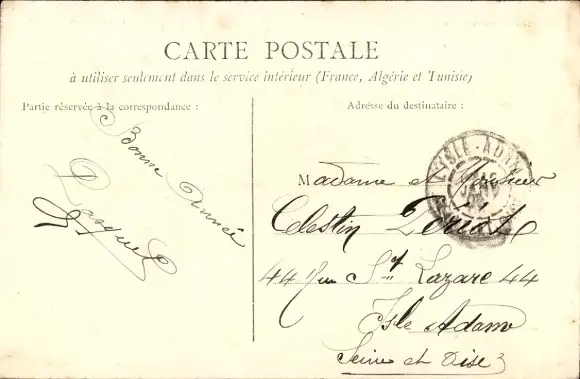 CARTE POSTALE
à utiliser seulement dans le service intérieur (France, Algérie et Tunisie)
Partie réservée à la correspondance :
Adresse du destinataire :
Bonne Année
L'ISLE-ADAM
Madame et Monsieur
Célestin
44 Rue St Lazare 44
Isle Adam
Seine et Oise